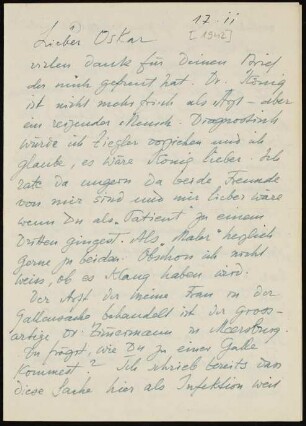 17 ii
[1942]
Lieber Oskar
vielen Dank für Deinen Brief
der mich gefreut hat. Dr. König
ist nicht mehr frisch als Arzt – aber
ein reizender Mensch. Diagnostisch
würde ich Ziegler vorziehen und ich
glaube, es wäre König lieber. Ich
rate da ungern da beide Freunde
von mir sind und mir lieber wäre
wenn Du als "Patient" zu einem
Dritten gingest. Als "Maler" herzlich
gerne zu beiden. Obschon ich nicht
weiss, ob es Klang haben wird.
Der Arzt der meine Frau in der
Gallensache behandelt ist der Gross-
artige Dr. Zimmermann in Meersburg.
Du frägst, wie Du zu einer Galle
kommest? Ich schrieb bereits dass
diese Sache hier als Infektion weit